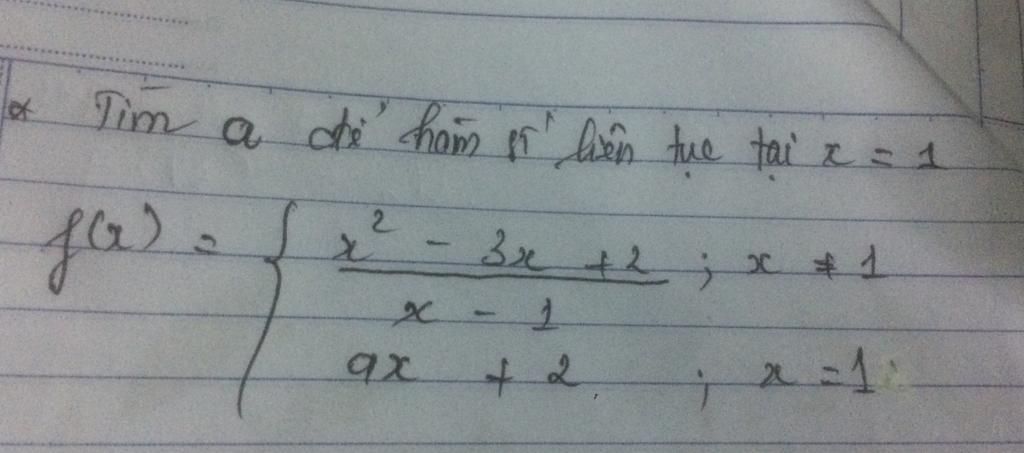 * Tìm a để hàm số liên tục tại x = 1
f(x) = { x² - 3x + 2 ; x ≠ 1
x - 1
ax + 2 ; x = 1